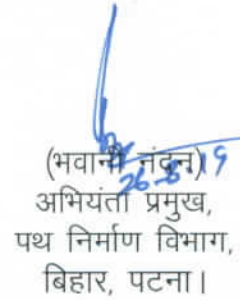 26-8-19
(भवानी नंदन)
अभियंता प्रमुख,
पथ निर्माण विभाग,
बिहार, पटना।